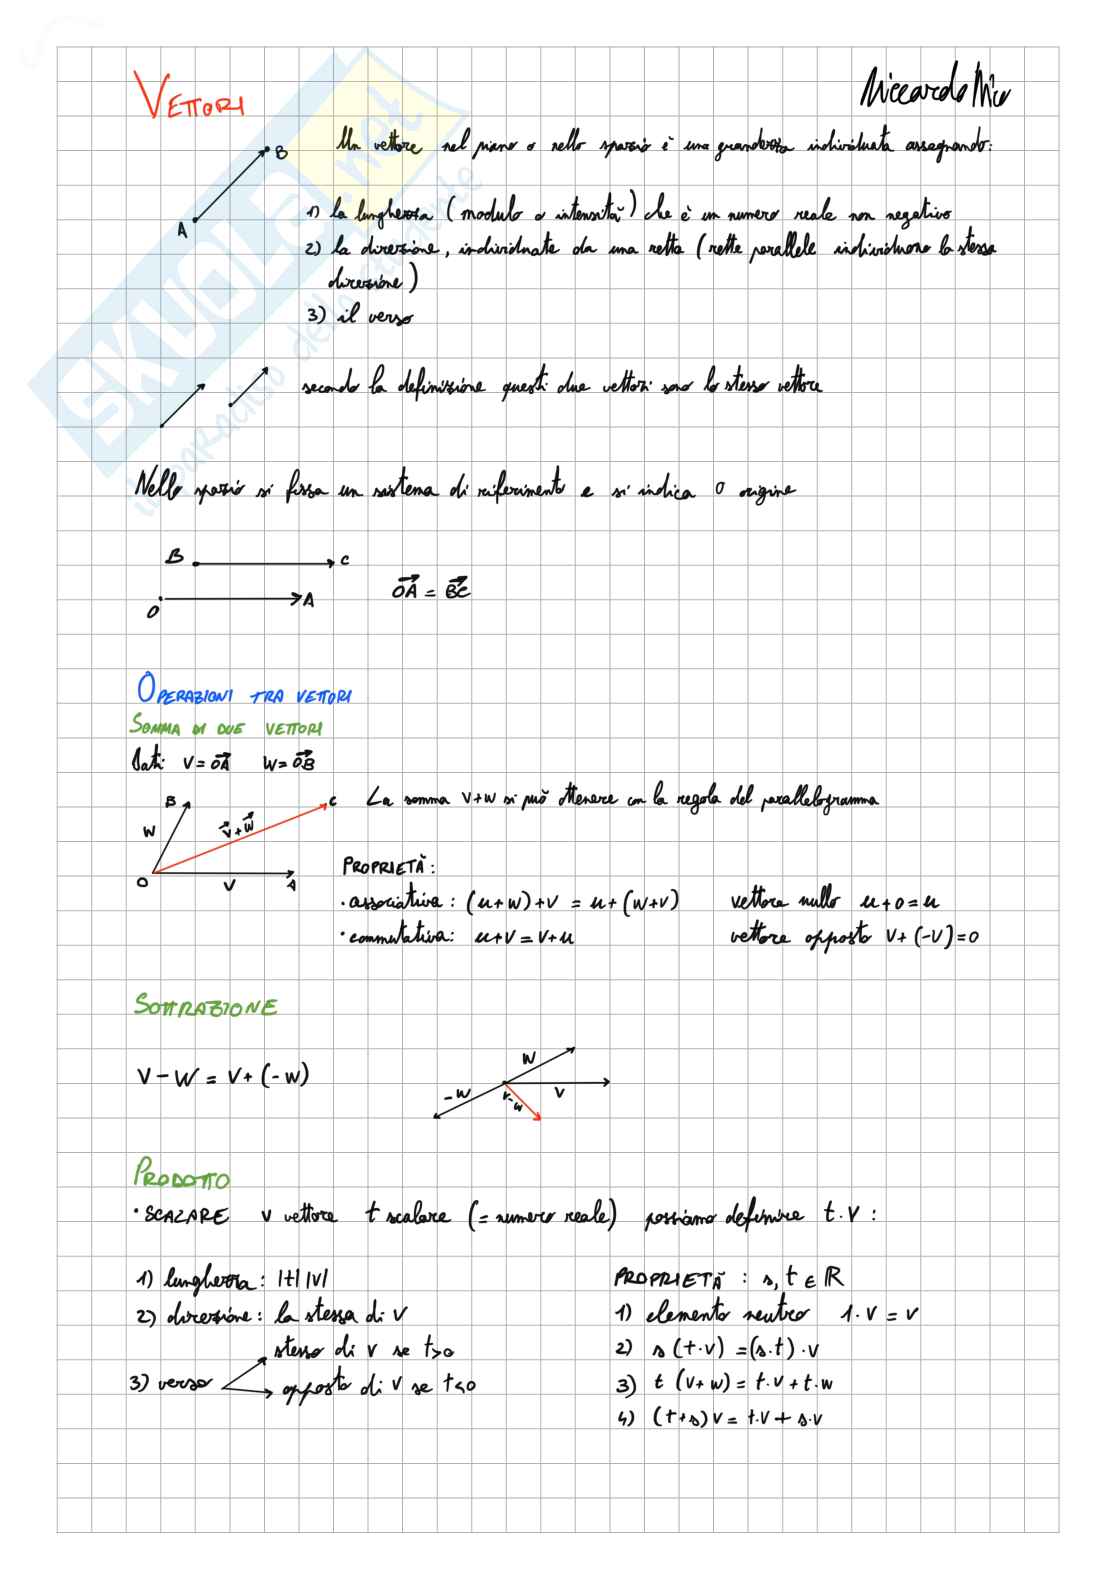 VETTORI
Un vettore nel piano o nello spazio è una grandezza individuata assegnando:
B
A
1) la lunghezza (modulo o intensità) che è un numero reale non negativo
2) la direzione, individuata da una retta (rette parallele individuano la stessa
direzione)
3) il verso
secondo la definizione questi due vettori sono lo stesso vettore
Nello spazio si fissa un sistema di riferimento e si indica O origine
B C
O A
OA = BC
OPERAZIONI TRA VETTORI
SOMMA DI DUE VETTORI
Dati: V = OA W = OB
B C
La somma V+W si può ottenere con la regola del parallelogramma
W V+W
O V A
PROPRIETÀ:
• associativa: (u+w)+v = u+(w+v) vettore nullo u+0=u
• commutativa: u+v = v+u vettore opposto v+(-v)=0
SOTTRAZIONE
V-W = V+(-W)
W
-W V-W V
PRODOTTO
• SCALARE v vettore t scalare (= numero reale) possiamo definire t·v:
1) lunghezza: |t| |v|
2) direzione: la stessa di v
stesso di v se t>0
3) verso
opposto di v se t<0
PROPRIETÀ: s,t ∈ ℝ
1) elemento neutro 1·v = v
2) s(t·v) = (s·t)·v
3) t(v+w) = t·v+t·w
4) (t+s)v = t·v+s·v
SKUOLA.net
il paradiso dello studente